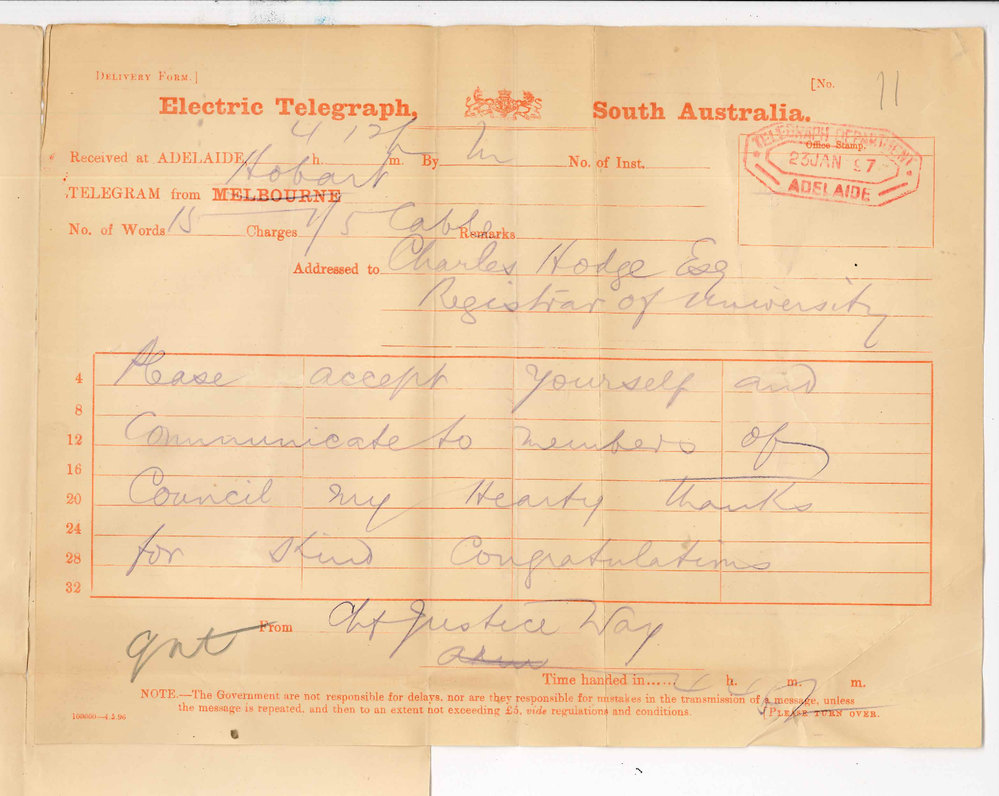 DELIVERY FORM.] [No. 11
Electric Telegraph, South Australia.
Received at ADELAIDE 4 h. 12 m. By No. of Inst.
TELEGRAM from MELBOURNE Hobart
No. of Words 15 Charges 1/5 Cable Remarks
TELEGRAPH DEPARTMENT
Office Stamp.
23 JAN 97
ADELAIDE
Addressed to Charles Hodge Esq
Registrar of University
4 Please accept yourself and
8
12 Communicate to members of
16
20 Council my Hearty thanks
24
28 for Kind Congratulations
32
From Chf Justice Way
Time handed in...... h. m. m.
NOTE.—The Government are not responsible for delays, nor are they responsible for mistakes in the transmission of a message, unless
the message is repeated, and then to an extent not exceeding £5, vide regulations and conditions. [PLEASE TURN OVER.
160000—4.5.96